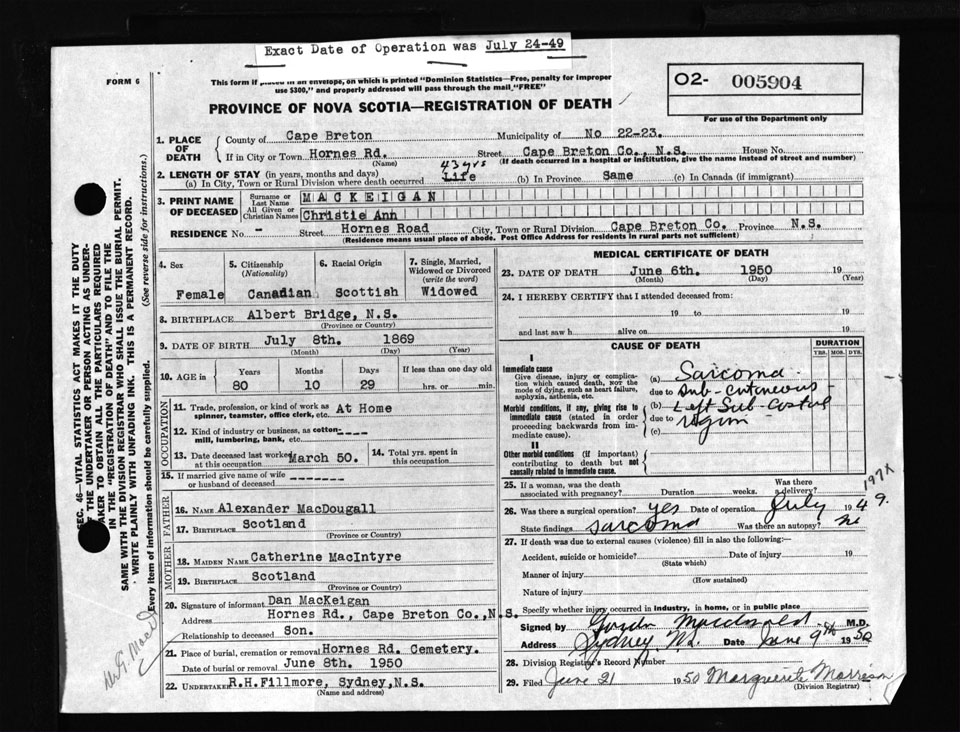 Exact Date of Operation was July 24-49
FORM 6
This form if placed in an envelope, on which is printed "Dominion Statistics—Free, penalty for improper
use $300," and properly addressed will pass through the mail "FREE"
PROVINCE OF NOVA SCOTIA—REGISTRATION OF DEATH
O2- 005904
For use of the Department only
1. PLACE OF DEATH
County of Cape Breton Municipality of No 22-23.
If in City or Town Hornes Rd. Street Cape Breton Co., N.S. House No.
(Name) (If death occurred in a hospital or institution, give the name instead of street and number)
2. LENGTH OF STAY (in years, months and days) 43 yrs
(a) In City, Town or Rural Division where death occurred Life (b) In Province Same (c) In Canada (if immigrant)
3. PRINT NAME OF DECEASED
Surname or Last Name MACKEIGAN
All Given or Christian Names Christie Ann
RESIDENCE No. - Street Hornes Road City, Town or Rural Division Cape Breton Co. Province N.S.
(Residence means usual place of abode. Post Office Address for residents in rural parts not sufficient)
4. Sex
Female
5. Citizenship
(Nationality)
Canadian
6. Racial Origin
Scottish
7. Single, Married,
Widowed or Divorced
(write the word)
Widowed
8. BIRTHPLACE Albert Bridge, N.S.
(Province or Country)
9. DATE OF BIRTH July 8th. 1869
(Month) (Day) (Year)
10. AGE in Years Months Days If less than one day old
80 10 29 hrs. or min.
OCCUPATION
11. Trade, profession or kind of work as At Home
spinner, teamster, office clerk, etc.
12. Kind of industry or business, as cotton- ----
mill, lumbering, bank, etc.
13. Date deceased last worked March 50.
at this occupation
14. Total yrs. spent in
this occupation
15. If married give name of wife
or husband of deceased --------
FATHER
16. Name Alexander MacDougall
17. Birthplace Scotland
(Province or Country)
MOTHER
18. Maiden Name Catherine MacIntyre
19. Birthplace Scotland
(Province or Country)
20. Signature of informant Dan MacKeigan
Address Hornes Rd., Cape Breton Co., N.S.
Relationship to deceased Son.
21. Place of burial, cremation or removal Hornes Rd. Cemetery.
Date of burial or removal June 8th. 1950
22. UNDERTAKER R.H.Fillmore, Sydney,N.S.
(Name and address)
MEDICAL CERTIFICATE OF DEATH
23. DATE OF DEATH June 6th. 1950 19
(Month) (Day) (Year)
24. I HEREBY CERTIFY that I attended deceased from:
19 to 19
and last saw h alive on 19
CAUSE OF DEATH
DURATION
YRS. MOS. DYS.
I
Immediate cause
Give disease, injury or complication
which caused death, NOT the
mode of dying, such as heart failure,
asphyxia, asthenia, etc.
(a) Sarcoma -
due to Sub-cutaneous -
Morbid conditions, if any, giving rise to
immediate cause (stated in order
proceeding backwards from immediate
cause).
(b) Left Sub-Costal
due to region
(c)
II
Other morbid conditions (if important)
contributing to death but not
causally related to immediate cause.
25. If a woman, was the death
associated with pregnancy? Duration weeks. Was there
a delivery?
197X
26. Was there a surgical operation? yes Date of operation July 1949.
State findings Sarcoma Was there an autopsy? no
27. If death was due to external causes (violence) fill in also the following:—
Accident, suicide or homicide? Date of injury 19
(State which)
Manner of injury
(How sustained)
Nature of injury
Specify whether injury occurred in industry, in home, or in public place
Signed by Gordon Macdonald M.D.
Address Sydney N.S. Date June 9th 1950
28. Division Registrar's Record Number
29. Filed June 21 1950 Marguerite Morrison
(Division Registrar)
SEC. 46—VITAL STATISTICS ACT MAKES IT THE DUTY
OF THE UNDERTAKER OR PERSON ACTING AS UNDERTAKER
TO OBTAIN ALL THE PARTICULARS REQUIRED
IN THE "REGISTRATION OF DEATH" AND TO FILE THE
SAME WITH THE DIVISION REGISTRAR WHO SHALL ISSUE THE BURIAL PERMIT.
WRITE PLAINLY WITH UNFADING INK. THIS IS A PERMANENT RECORD.
Every item of information should be carefully supplied. (See reverse side for instructions.)